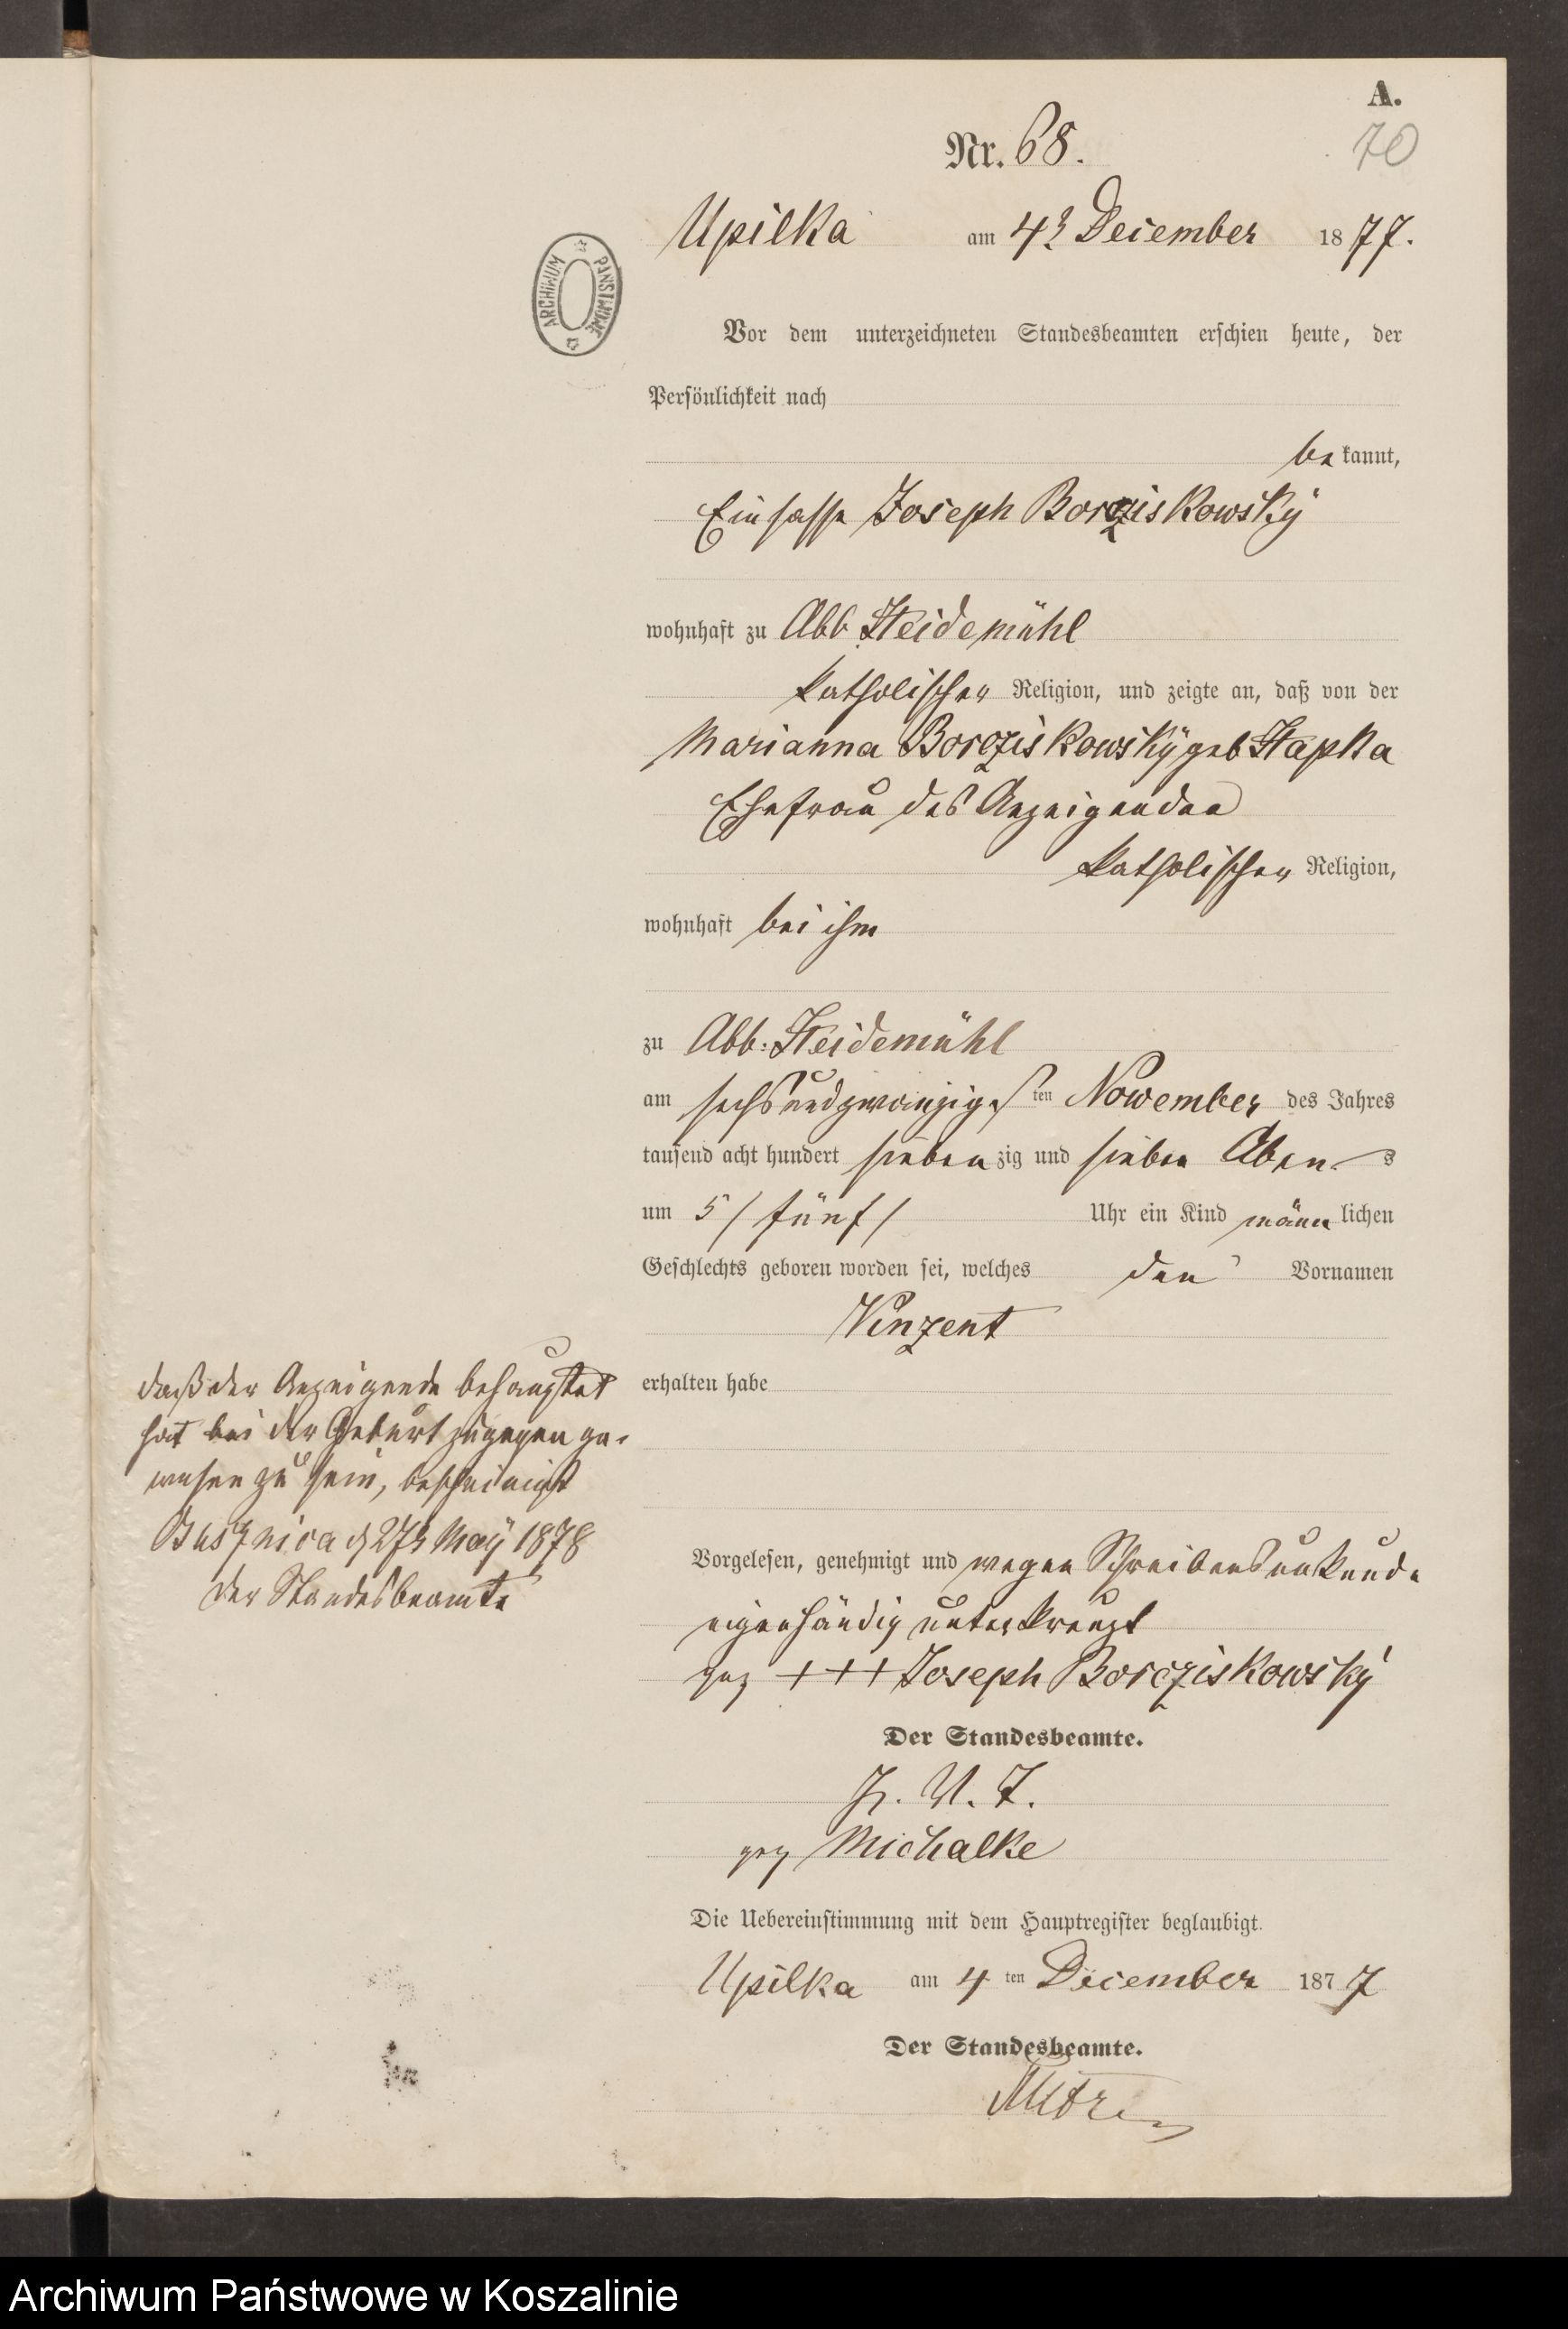 A.
Nr. 68.
70
Upilka am 4t December 1877.
ARCHIWUM PAŃSTWOWE
Vor dem unterzeichneten Standesbeamten erschien heute, der
Persönlichkeit nach
bekannt,
Einsasse Joseph Borcziskowsky
wohnhaft zu Abb. Heidemühl
katholischer Religion, und zeigte an, daß von der
Marianna Borcziskowsky geb Hapka
Ehefrau des Anzeigenden
katholischer Religion,
wohnhaft bei ihm
zu Abb. Heidemühl
am sechsundzwanzigsten Nowember des Jahres
tausend acht hundert siebenzig und sieben Abends
um 5 / fünf / Uhr ein Kind männlichen
Geschlechts geboren worden sei, welches den Vornamen
Vinzent
erhalten habe
daß der Anzeigende behauptet
hat bei der Geburt zugegen ge-
wesen zu sein, bescheinigt
d 27t May 1878
Der Standesbeamte
Vorgelesen, genehmigt und wegen Schreibensunkunde
eigenhändig unterkreuzt
gez +++ Joseph Borcziskowsky
Der Standesbeamte.
gez Michalke
Die Uebereinstimmung mit dem Hauptregister beglaubigt.
Upilka am 4ten December 1877
Der Standesbeamte.
Archiwum Państwowe w Koszalinie